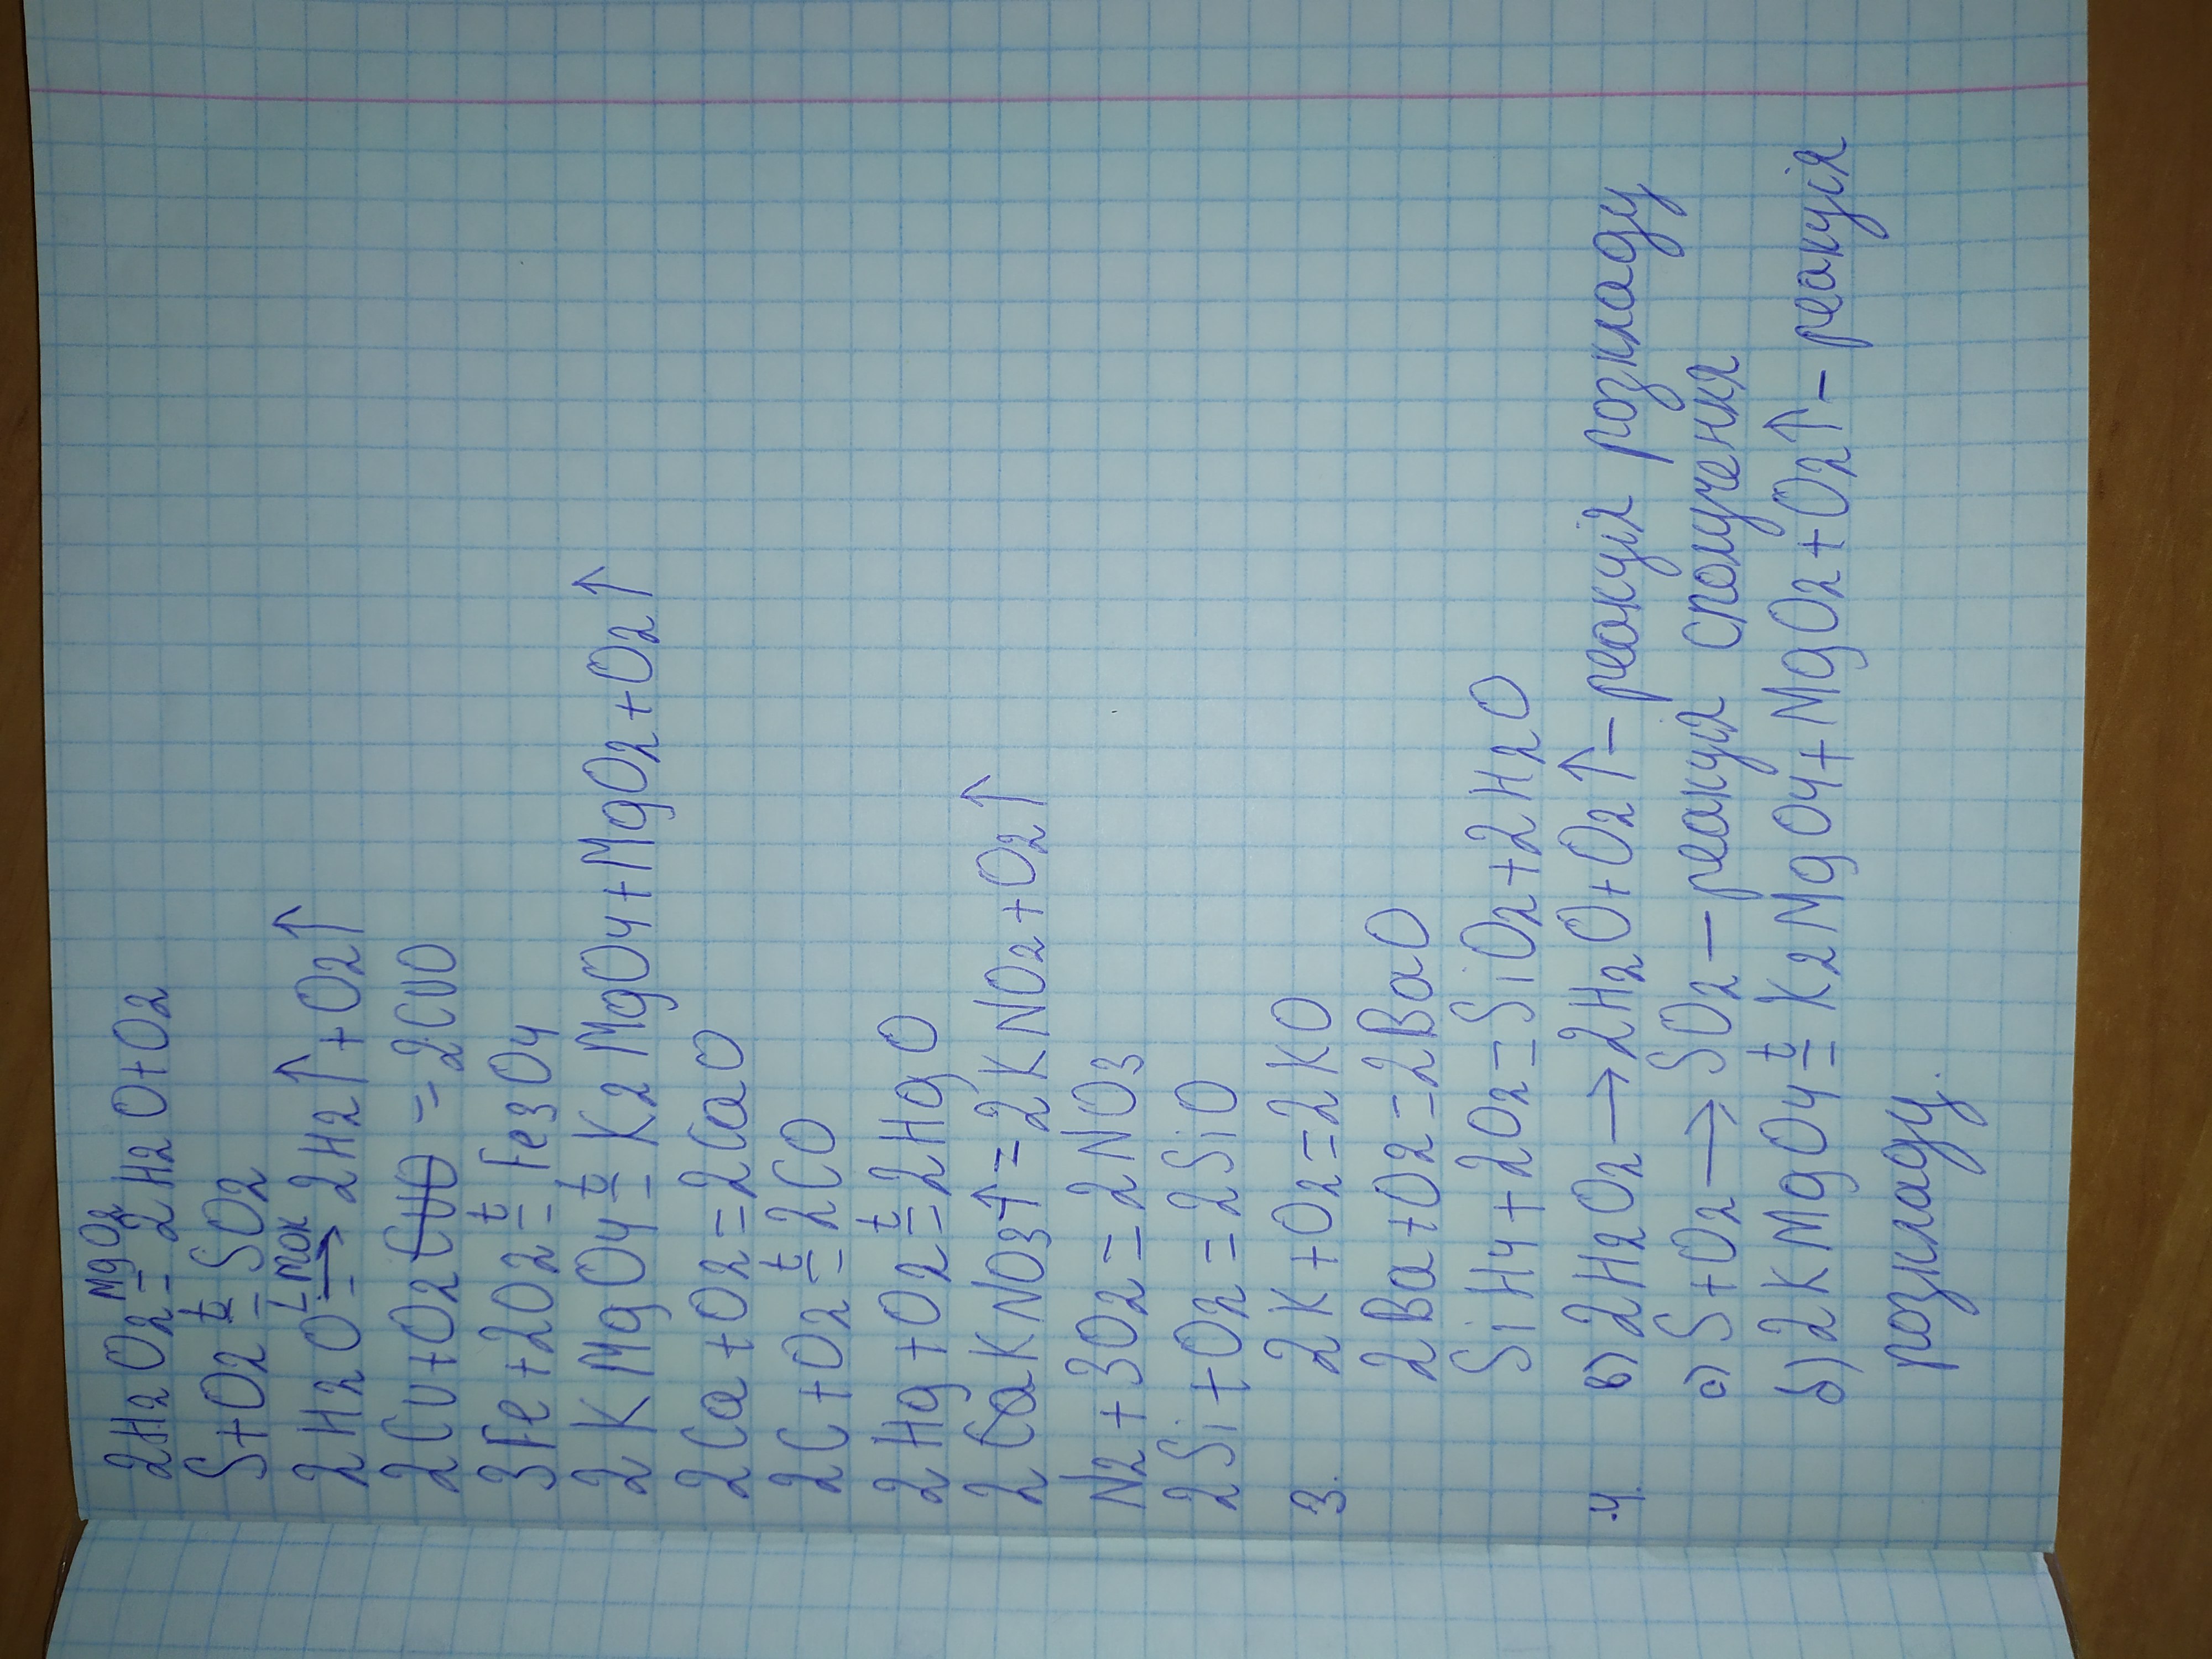 2H2O2 MgO2= 2H2O+O2
S+O2 t= SO2
2H2O L mok→ 2H2↑+O2↑
2Cu+O2 CuO = 2CuO
3Fe+2O2 t= Fe3O4
2KMgO4 t= K2MgO4+MgO2+O2↑
2Ca+O2=2CaO
2C+O2 t= 2CO
2Hg+O2 t= 2HgO
2CaKNO3↑=2KNO2+O2↑
N2+3O2=2NO3
2Si+O2=2SiO
3. 2K+O2=2KO
2Ba+O2=2BaO
SiH4+2O2=SiO2+2H2O
4. в) 2H2O2→2H2O+O2↑– реакція розкладу
а) S+O2→SO2– реакція сполучення
б) 2KMgO4 t= K2MgO4+MgO2+O2↑– реакція
розкладу.